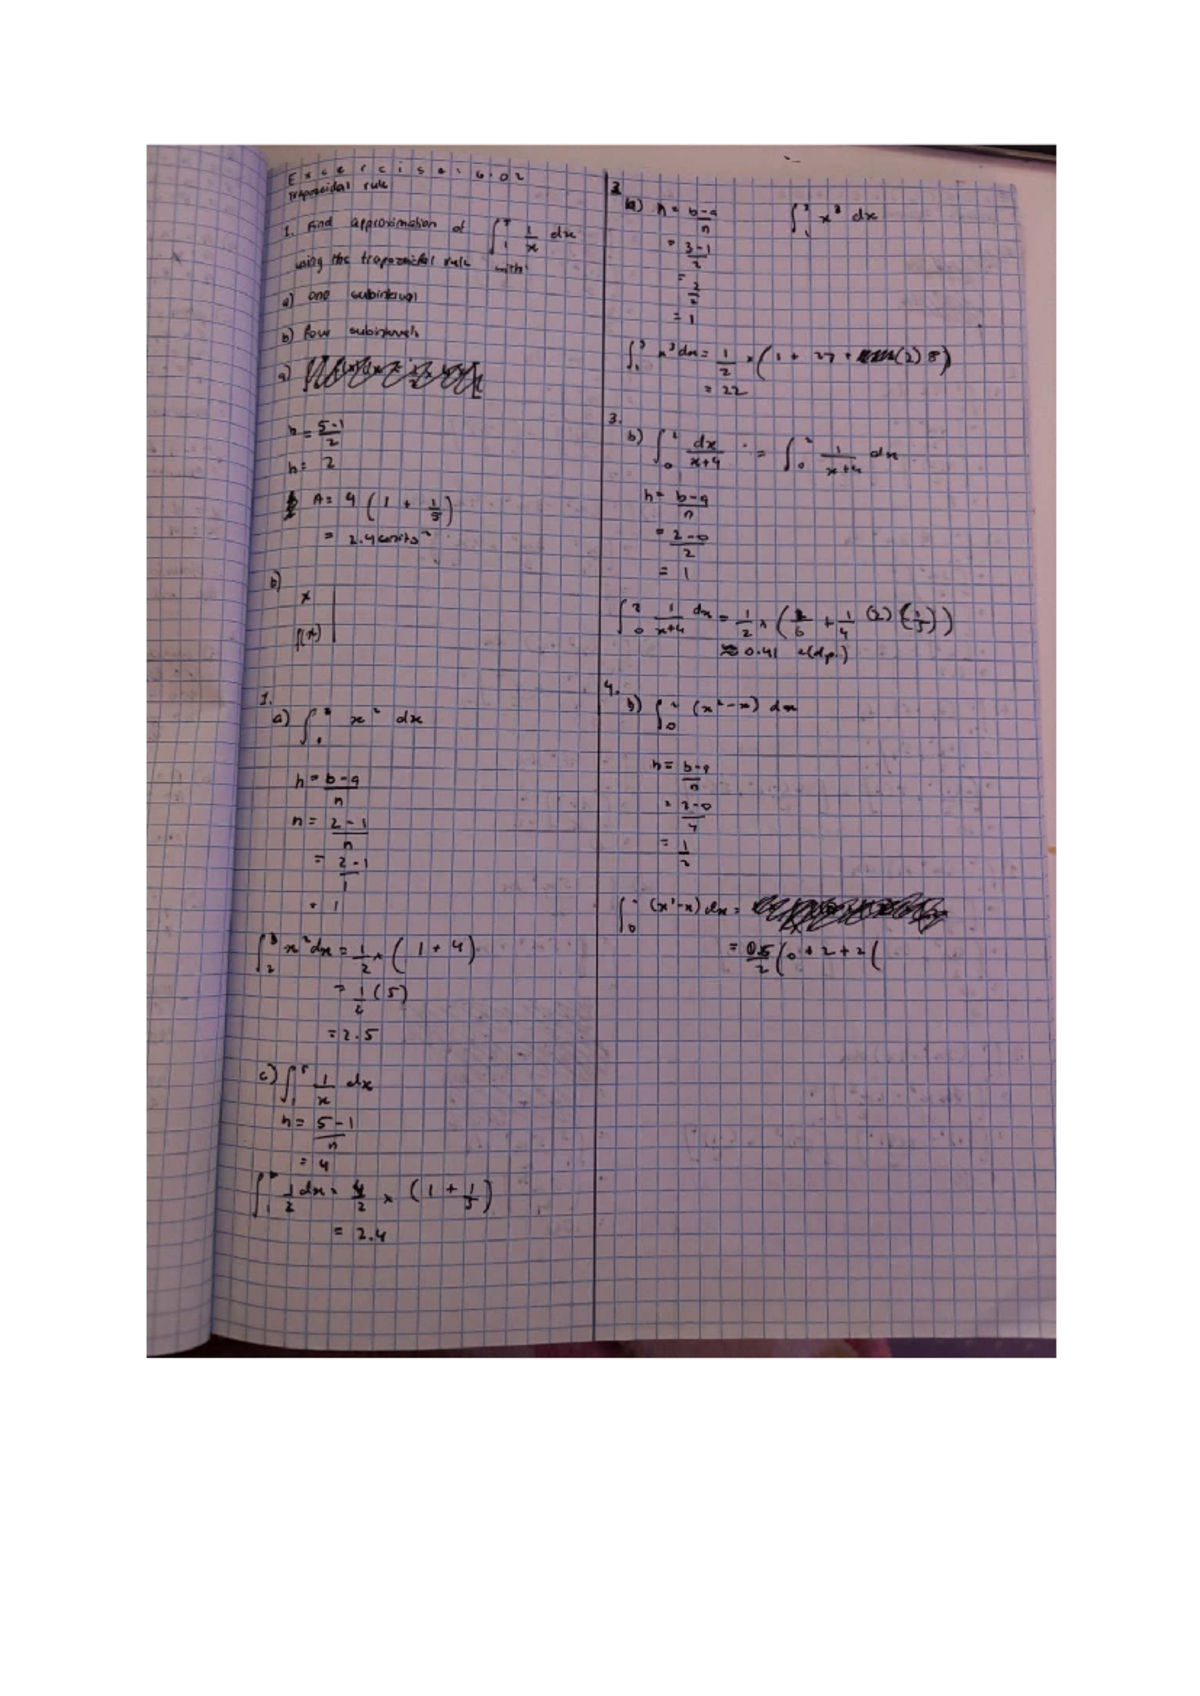 Excercise: 6.02
Trapezoidal rule
1. Find approximation of ∫₁⁵ 1/x dx
using the trapezoidal rule with:
a) one subinterval
b) four subintervals
a)
h = 5-1/2
h = 2
A = 4 (1 + 1/5)
= 2.4 units²
b)
x
f(x)
1.
a) ∫ x² dx
h = b-a/n
n = 2-1/n
= 2-1/1
= 1
x²dx = 1/2 × (1 + 4)
= 1/2 (5)
= 2.5
c) ∫₁⁵ 1/x dx
h = 5-1/n
= 4
1/2 dx = 4/2 × (1 + 1/5)
= 2.4
a) h = b-a/n ∫₁³ x³ dx
= 3-1/2
= 2/2
= 1
∫₁³ x³dx = 1/2 × (1 + 27 + (2) 8)
= 22
3.
b) ∫₀² dx/x+4 = ∫₀² 1/x+4 dx
h = b-a/n
= 2-0/2
= 1
∫₀² 1/x+4 dx = 1/2 × (1/6 + 1/4 (2) (1/5))
≈ 0.41 2(dp.)
4.
b) ∫₀² (x²-x) dx
h = b-a/n
= 2-0/4
= 1/2
∫₀² (x²-x) dx =
= 0.5/2 (0 + 2 + 2 (